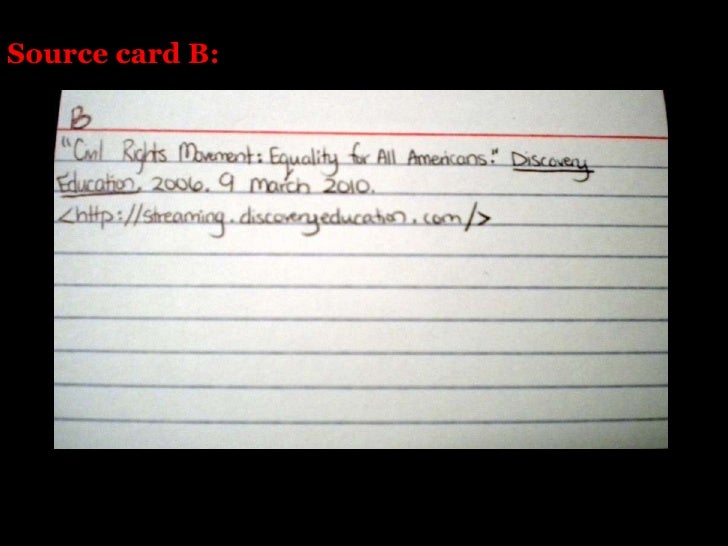 Source card B:
B
"Civil Rights Movement: Equality for All Americans." Discovery
Education, 2006. 9 March 2010.
<http://streaming.discoveryeducation.com/>